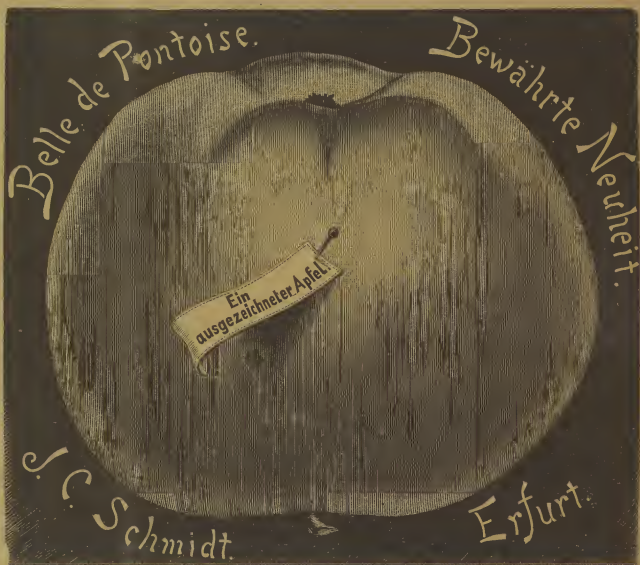 Belle de Pontoise.
Bewährte Neuheit.
Ein
ausgezeichneter Apfel.
J. C. Schmidt.
Erfurt.